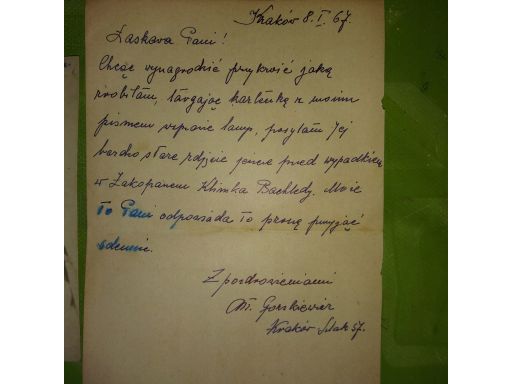 Kraków 8.I.67.
Łaskava Pani!
Chcąc wynagrodzić przykrość jaką
zrobiłam, targając kartenkę z moim
pismem w sprawie lamp, posyłam Jej
bardzo stare zdjęcie jeszcze przed wypadkiem
w Zakopanem Klimka Bachledy. Może
to Pani odpowiada to proszę przyjąć
odemnie.
Z pozdrowieniami
M. Gorskiewicz
Kraków 57.